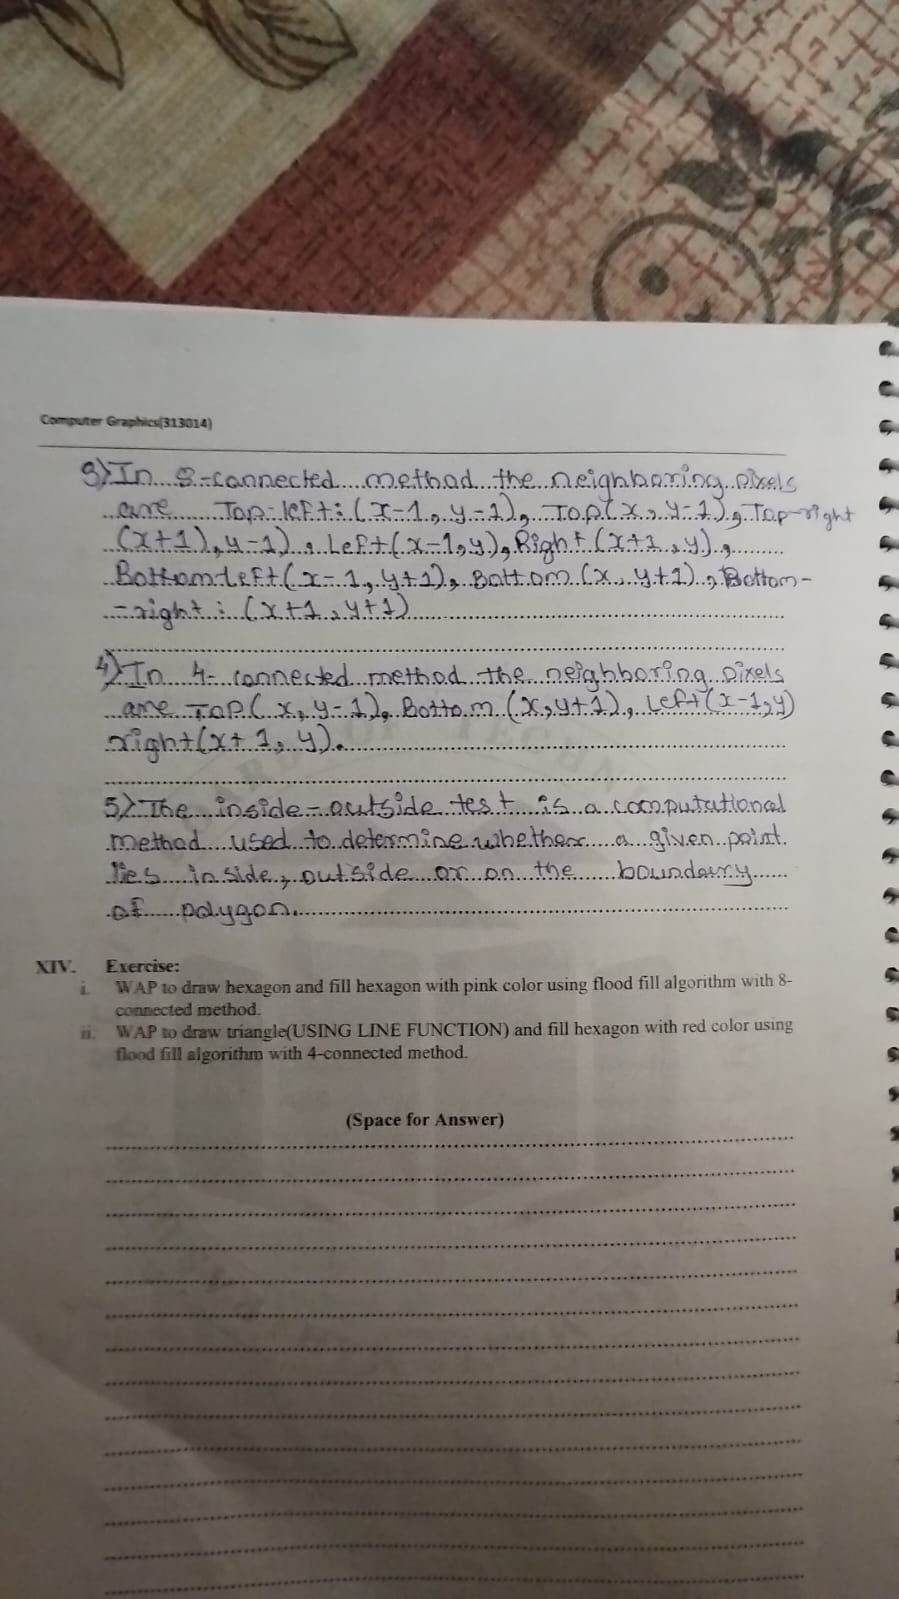 Computer Graphics(313014)
3) In 8-connected method the neighboring pixels
are Top-left: (x-1, y-1), Top(x, y-1), Top-right
(x+1), y-1), Left(x-1,y), Right (x+1, y),
Bottom-left(x-1, y+1), Bottom (x, y+1), Bottom-
-right: (x+1, y+1)
4) In 4- connected method the neighboring pixels
are Top( x, y-1), Bottom (x,y+1), Left(x-1,y)
right(x+1, y).
5) The inside-outside test is a computational
method used to determine whether a given point
lies inside, outside or on the boundary
of polygon.
XIV. Exercise:
i. WAP to draw hexagon and fill hexagon with pink color using flood fill algorithm with 8-
connected method.
ii. WAP to draw triangle(USING LINE FUNCTION) and fill hexagon with red color using
flood fill algorithm with 4-connected method.
(Space for Answer)